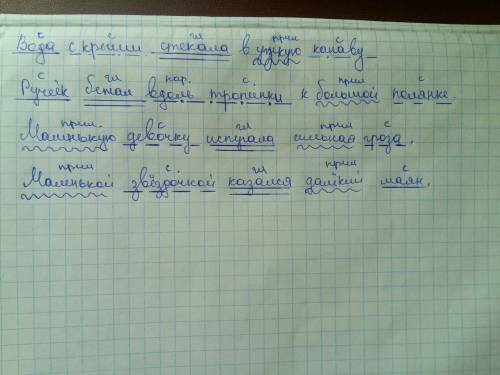 с с гл прил с
Вода с крыши стекала в узкую канаву
с гл нар. с. прил с
Ручеёк бежал вдоль тропинки к большой полянке.
прил. с гл прил с
Маленькую девочку испугала сильная гроза.
прил с. гл прил с
Маленькой звёздочкой казался далёкий маяк.